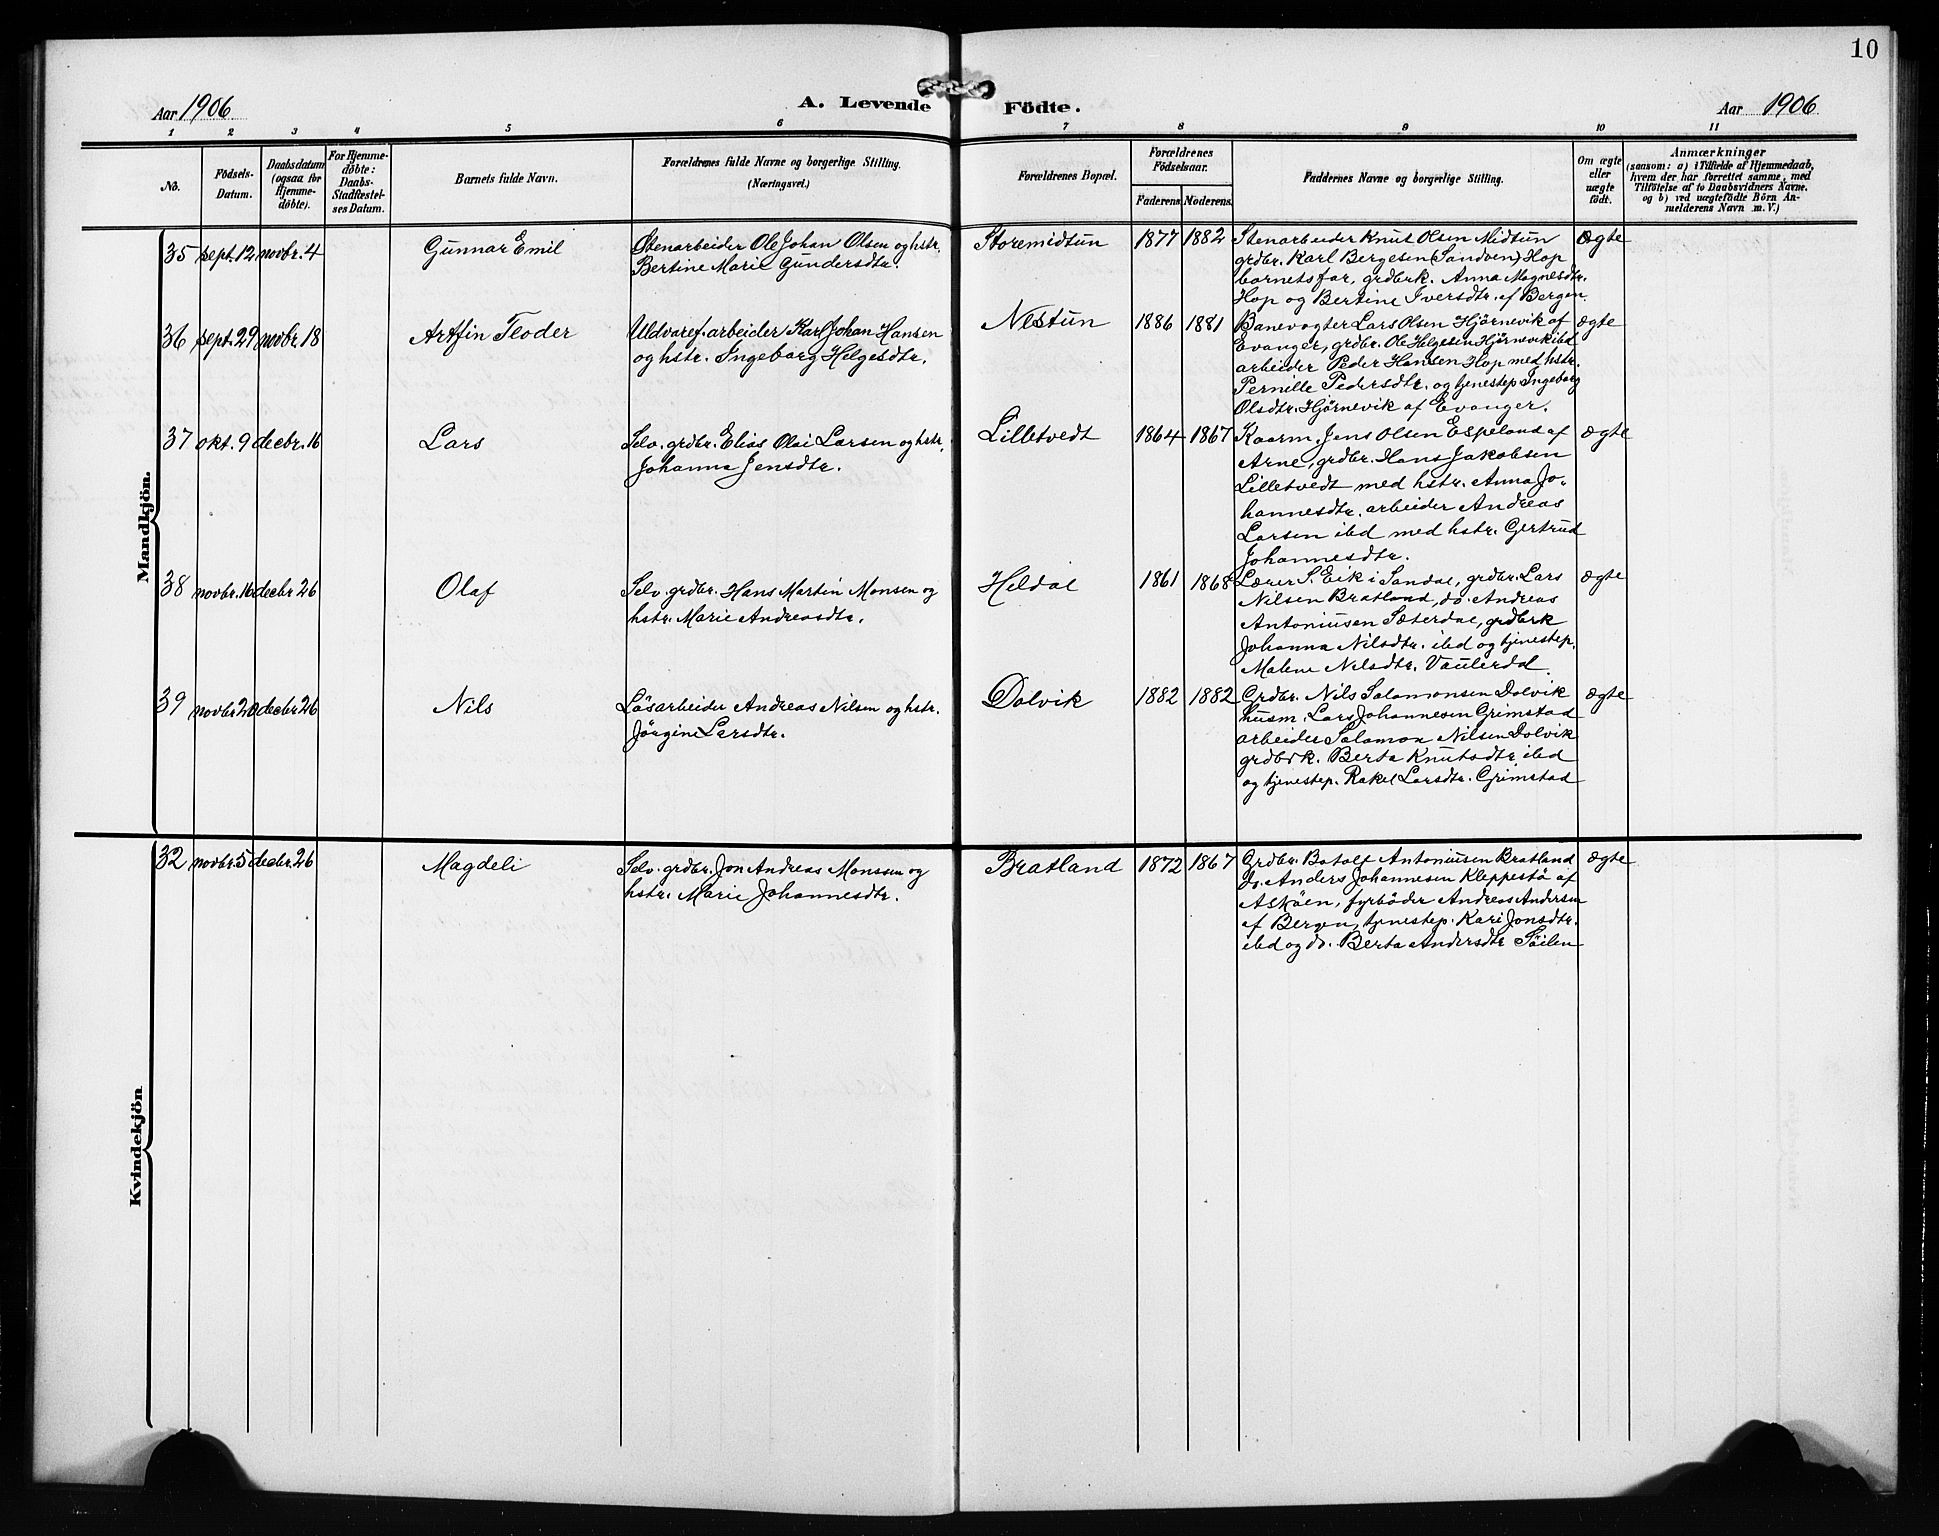 10
Aar 1906
A. Levende
Födte.
Aar 1906
1 2 3 4 5 6 7 8 9 10 11
No.
Födsels-
Datum.
Daabsdatum
(ogsaa for
Hjemme-
döbte).
For Hjemme-
döbte:
Daabs-
Stadfæstel-
ses Datum.
Barnets fulde Navn.
Forældrenes fulde Navne og borgerlige Stilling.
(Næringsvei.)
Forældrenes Bopæl.
Forældrenes
Födselsaar.
Faderens Moderens
Faddernes Navne og borgerlige Stilling.
Om ægte
eller
uægte
født.
Anmærkninger
(saasom: a) i Tilfælde af Hjemmedaab,
hvem der har forrettet samme, med
Tilföielse af to Daabsvidners Navne.
og b) ved uægtefödte Börn An-
melderens Navn m. V.)
Mandkjön.
35 sept. 12 novbr. 4
Gunnar Emil
Stenarbeider Ole Johan Olsen og hstr.
Bertine Marie Gundersdtr.
Storemidtun
1877 1882
Stenarbeider Knut Olsen Midtun
grdbr. Karl Bergesen (Sandven) Hop
barnets far, grdbrk. Anna Magnesdtr.
Hop og Bertine Iversdtr. af Bergen
ægte
36 sept. 29 novbr. 18
Artfin Teoder
Uldvaref. arbeider Karl Johan Hansen
og hstr. Ingeborg Helgesdtr.
Nestun
1886 1881
Banevogter Lars Olsen Hjørnevik af
Evanger, grdbr. Ole Helgesen Hjørnevik ibd
arbeider Peder Hansen Hop med hstr.
Pernille Pedersdtr. og tjenestep Ingeborg
Olsdtr. Hjørnevik af Evanger.
ægte
37 okt. 9 decbr. 16
Lars
Selv. grdbr. Elias Olai Larsen og hstr.
Johanna Jensdtr.
Lilletvedt
1864 1867
Kaarm. Jens Olsen Espeland af
Arne, grdbr. Hans Jakobsen
Lilletvedt med hstr. Anna Jo-
hannesdtr. arbeider Andreas
Larsen ibd med hstr. Gertrud
Johannesdtr.
ægte
38 novbr. 16 decbr 26
Olaf
Selv. grdbr. Hans Martin Monsen og
hstr. Marie Andreasdtr.
Heldal
1861 1868
Lærer S. Eik i Sandal, grdbr. Lars
Nilsen Bratland, do. Andreas
Antoniusen Sæterdal, grdbrk
Johanna Nilsdtr. ibd og tjenestep.
Malene Nilsdtr. Vaulerdal
ægte
39 novbr 20 decbr 26
Nils
Løsarbeider Andreas Nilsen og hstr.
Jørgine Larsdtr.
Dolvik
1882 1882
Grdbr. Nils Salamonsen Dolvik
husm. Lars Johannesen Grimstad
arbeider Salamon Nilsen Dolvik
grdbrk. Berta Knutsdtr ibd
og tjenestep. Rakel Larsdtr. Grimstad
ægte
Kvindekjön
32 novbr. 5 decbr. 26
Magdeli
Selv. grdbr. Jon Andreas Monssen og
hstr. Marie Johannesdtr.
Bratland
1872 1867
Grdbr. Botolf Antoniusen Bratland
do. Anders Johannesen Kleppestø af
Askøen, fyrbøder Andreas Andersen
af Bergen, tjenestep. Kari Jonsdtr.
ibd og do. Berta Andersdtr Søilen
ægte